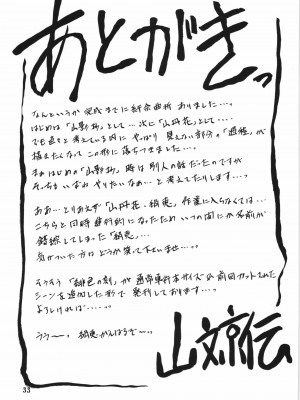 あとがきっ
なんというか完成までに紆余曲折 ありました…。
はじめは「山影物」として…次に「山丹花」として…
でも色々と考えている内に やっぱり 見えない部分の「過程」が
描きたくなって この形に落ちつきました…。
まぁはじめの「山影物」時は 別人の話だったのですが
そっちもいずれやりたいなぁ…と考えてたりします…。
ああ…とりあえず「山丹花 絹恵」作業に入らなくては…
こちらと同時進行的になったため いつの間にか名前が
錯綜してしまった「絹恵…
気がついた方は どうか笑って下さいませ…。
そうそう「緋色の刻」が 通常単行本サイズで 前回カットされた
シーンを追加した形で 発行しております…。
よろしければ…
うう〜っ 絹恵 がんばるぞ〜っ
山文京伝
33